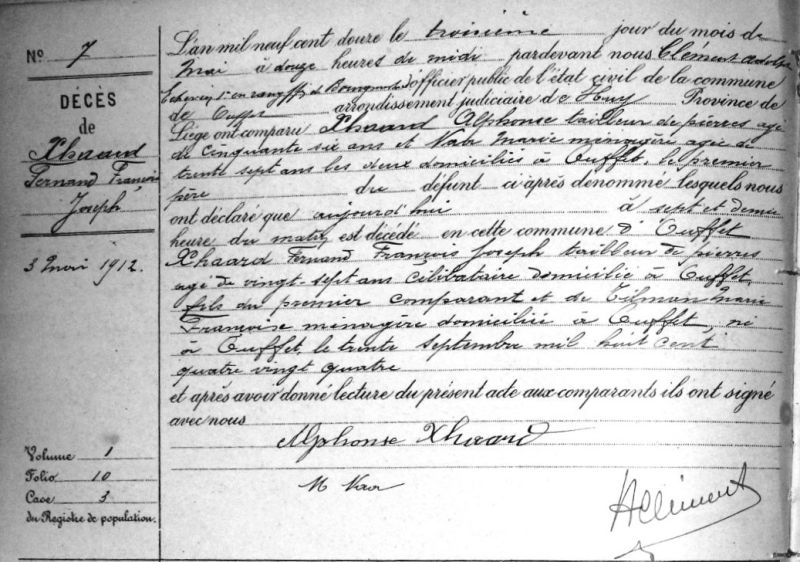 N° 7
DÉCÈS
de
Xhaard
Fernand François
Joseph
3 mai 1912.
Volume 1
Folio 10
Case 3
du Registre de population.
L'an mil neuf cent douze le troisième jour du mois de
Mai à douze heures de midi pardevant nous Clément Adolphe
Echevin officier public de l'état civil de la commune
de Ouffet arrondissement judiciaire de Huy Province de
Liège ont comparu Xhaard Alphonse tailleur de pierres agé
de cinquante six ans et Marie ménagère agée de
trente sept ans les deux domiciliés à Ouffet, le premier
père du défunt ci après dénommé lesquels nous
ont déclaré que aujourd'hui à sept et demie
heure du matin est décédé en cette commune d' Ouffet
Xhaard Fernand François Joseph tailleur de pierres
agé de vingt-sept ans célibataire domicilié à Ouffet,
fils du premier comparant et de Tilman Marie
Françoise ménagère domiciliée à Ouffet, né
à Ouffet, le trente septembre mil huit cent
quatre vingt quatre
et après avoir donné lecture du présent acte aux comparants ils ont signé
avec nous
Alphonse Xhaard
M
AClément